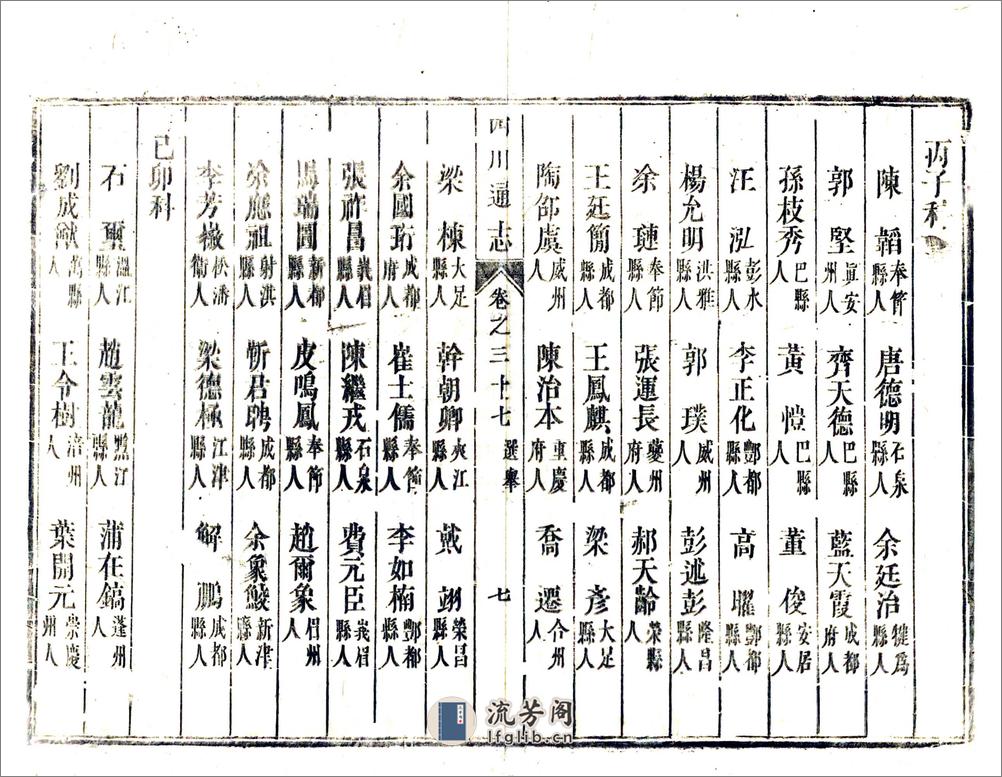 丙子科
陳韜奉節縣人 唐德明石泉縣人 余廷治犍爲縣人
郭堅眞安州人 齊天德巴縣人 藍天霞成都府人
孫枝秀巴縣人 黃愷巴縣人 董俊安居縣人
汪泓彭水縣人 李正化酆都縣人 高曜酆都縣人
楊允明洪雅縣人 郭璞威州人 彭述彭隆昌縣人
余璉奉節縣人 張運長夔州府人 郝天齡榮縣人
王廷簡成都縣人 王鳳麒成都縣人 梁彥大足縣人
陶郃虞威州人 陳治本重慶府人 喬遷合州人
四川通志 卷之三十七 選舉 七
梁棟大足縣人 幹朝卿夾江縣人 戴翊榮昌縣人
余國珩成都府人 崔士儒奉節縣人 李如楠酆都縣人
張祚昌峩眉縣人 陳繼戎石泉縣人 費元臣峩眉縣人
馮端圖新都縣人 皮鳴鳳奉節縣人 趙爾象眉州人
徐應祖射洪縣人 靳君聘成都縣人 余象鯪新津縣人
李芳檄松潘衞人 梁德極江津縣人 解鵬成都縣人
己卯科
石璽溫江縣人 趙雲龍黔江縣人 蒲在鎬蓬州人
劉成猷萬縣人 王令樹涪州人 葉開元崇慶州人
流芳阁
lfglib.cn